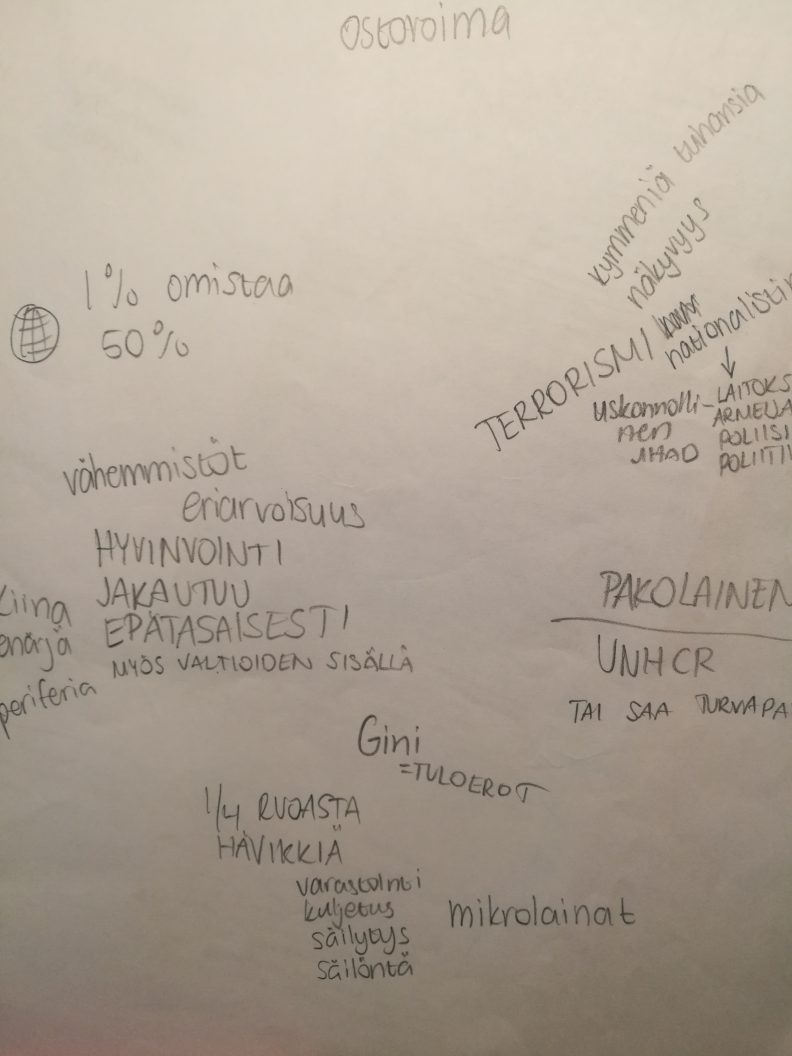 Ostovoima
kymmeniä tuhansia
näkyvyys
1% omistaa
50%
nationalistin
TERRORISMI
uskonnolli-
nen
JIHAD
LAITOKS
ARMEIJA
POLIISI
POLIITI
vähemmistöt
eriarvoisuus
HYVINVOINTI
JAKAUTUU
EPÄTASAISESTI
MYÖS VALTIOIDEN SISÄLLÄ
Kiina
periferia
PAKOLAINEN
UNHCR
TAI SAA TURVAPA
Gini
=TULOEROT
1/4 RUOASTA
HÄVIKKIÄ
varastointi
kuljetus
säilytys
säilöntä
mikrolainat